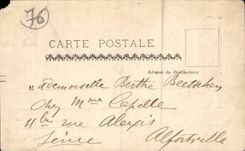 76
CARTE POSTALE
Adresse du Destinataire
Mademoiselle Berthe
Chez Mme Capelle
11bis rue Alexis
Seine Alfortville